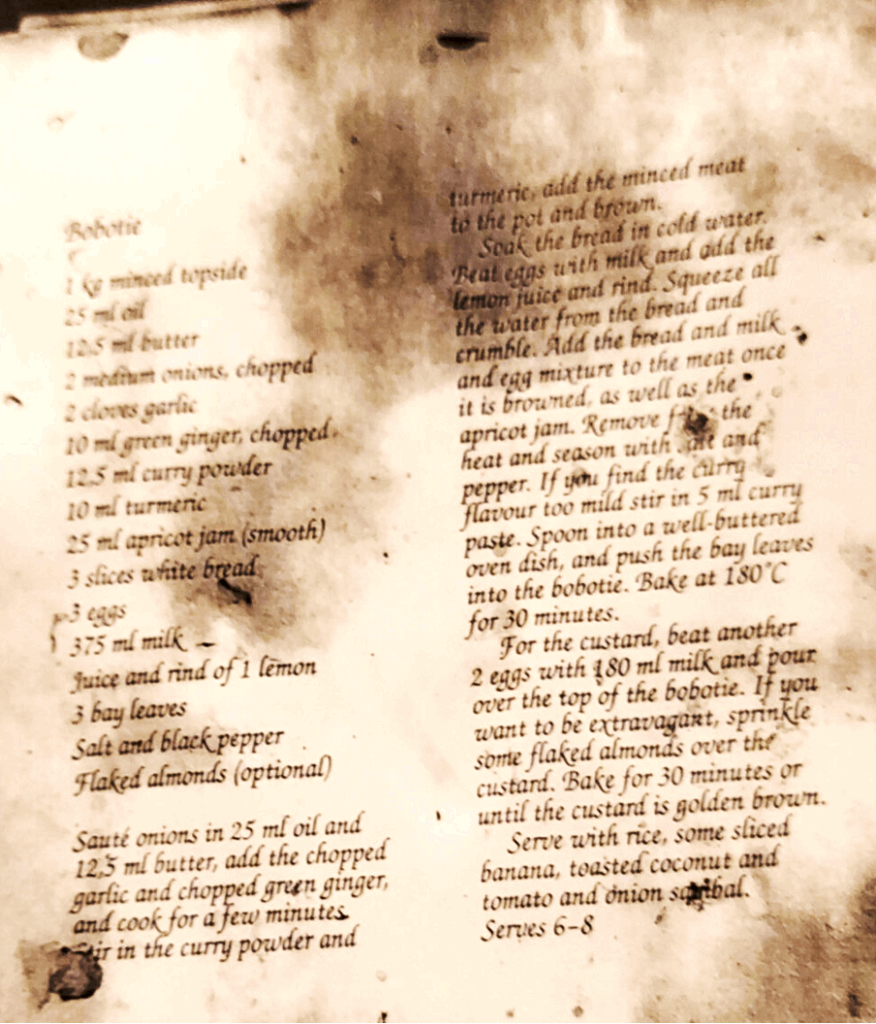 Bobotie
1 kg minced topside
25 ml oil
12.5 ml butter
2 medium onions, chopped
2 cloves garlic
10 ml green ginger, chopped
12.5 ml curry powder
10 ml turmeric
25 ml apricot jam (smooth)
3 slices white bread
3 eggs
375 ml milk
Juice and rind of 1 lemon
3 bay leaves
Salt and black pepper
Flaked almonds (optional)
Sauté onions in 25 ml oil and
12,5 ml butter, add the chopped
garlic and chopped green ginger,
and cook for a few minutes.
Stir in the curry powder and
turmeric, add the minced meat
to the pot and brown.
Soak the bread in cold water.
Beat eggs with milk and add the
lemon juice and rind. Squeeze all
the water from the bread and
crumble. Add the bread and milk
and egg mixture to the meat once
it is browned, as well as the
apricot jam. Remove from the
heat and season with salt and
pepper. If you find the curry
flavour too mild stir in 5 ml curry
paste. Spoon into a well-buttered
oven dish, and push the bay leaves
into the bobotie. Bake at 180°C
for 30 minutes.
For the custard, beat another
2 eggs with 180 ml milk and pour
over the top of the bobotie. If you
want to be extravagant, sprinkle
some flaked almonds over the
custard. Bake for 30 minutes or
until the custard is golden brown.
Serve with rice, some sliced
banana, toasted coconut and
tomato and onion sambal.
Serves 6–8